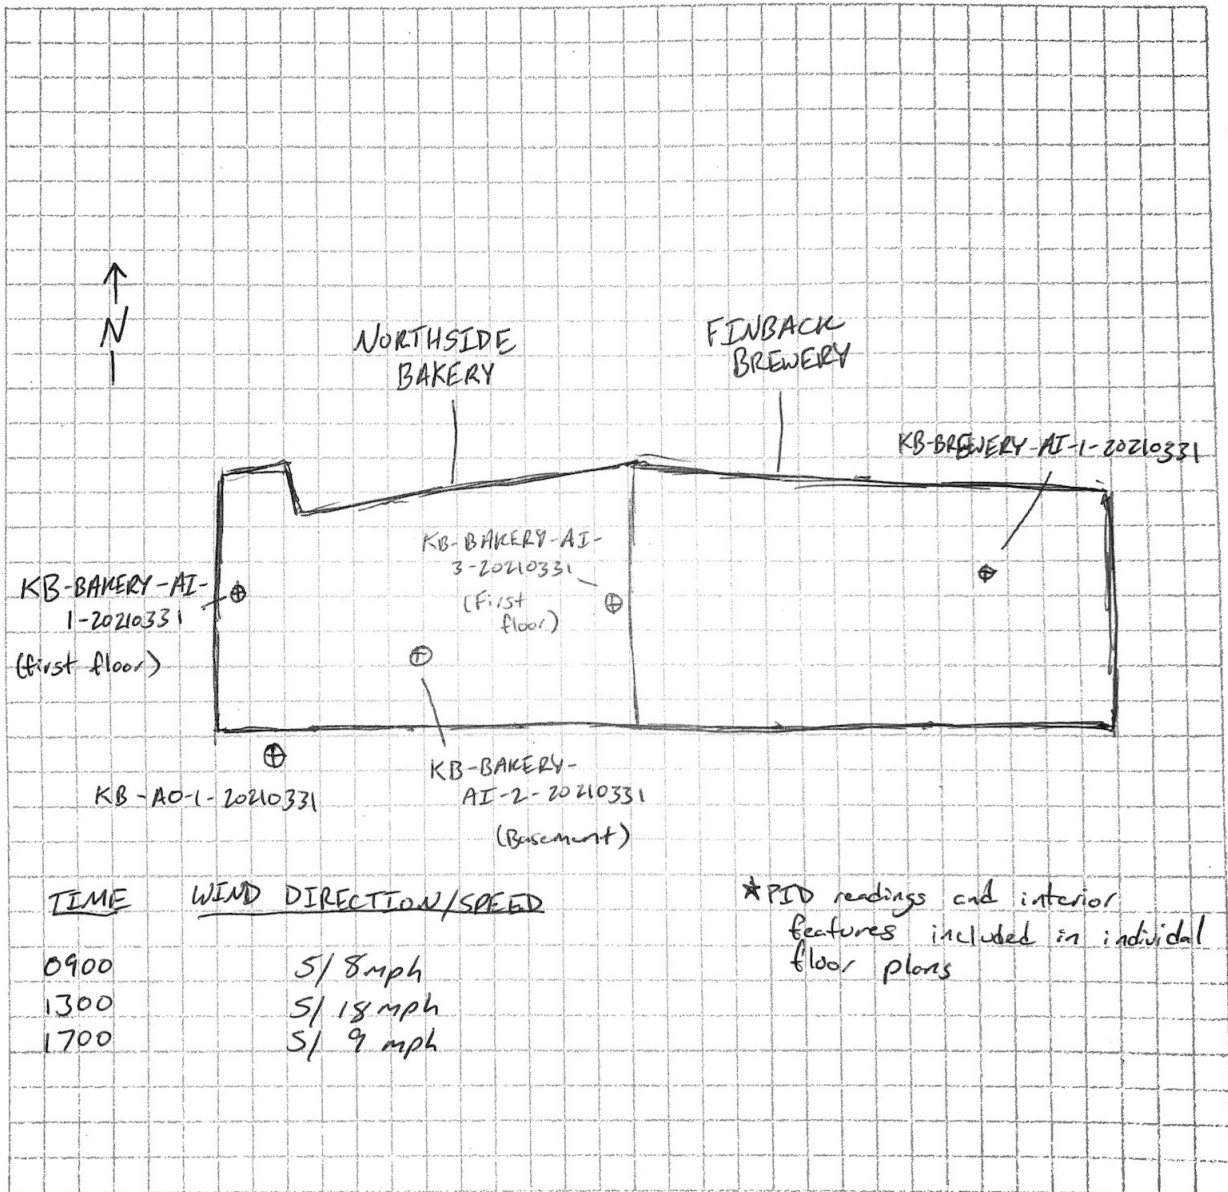 N
NORTHSIDE
BAKERY
FINBACK
BREWERY
KB-BREWERY-AI-1-20210331
KB-BAKERY-AI-
3-20210331
(First
floor)
KB-BAKERY-AI-
1-20210331
(first floor)
KB-AO-1-20210331
KB-BAKERY-
AI-2-20210331
(Basement)
TIME WIND DIRECTION/SPEED
0900 S/ 8mph
1300 S/ 18 mph
1700 S/ 9 mph
★PID readings and interior
features included in individal
floor plans